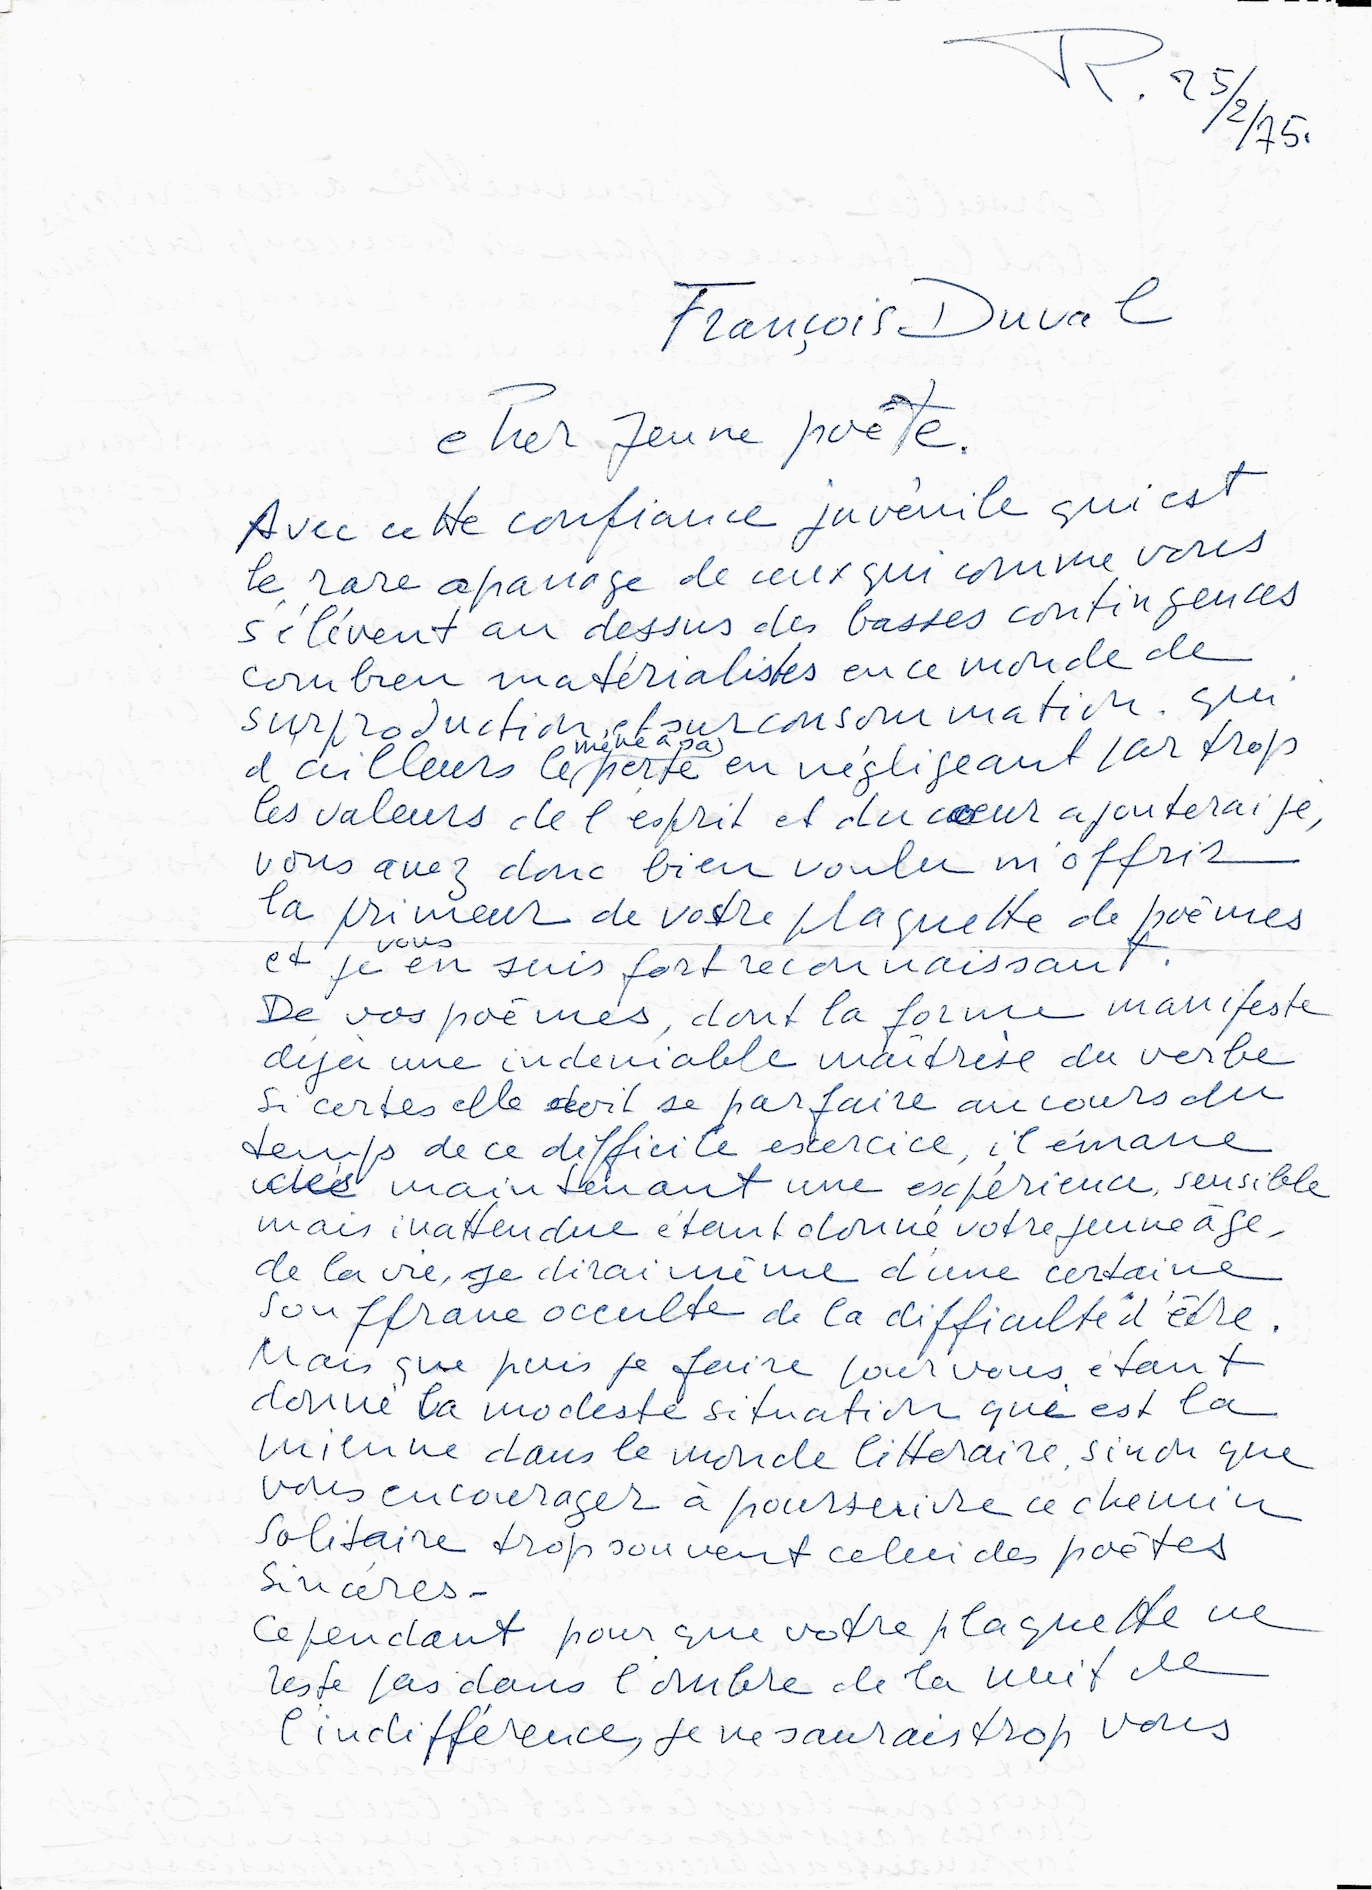 R. 25/2/75.
François Duval
Cher jeune poête.
Avec cette confiance juvénile qui est
le rare apanage de ceux qui comme vous
s'élèvent au dessus des basses contingences
combien matérialistes en ce monde de
surproduction et surconsommation. qui
d'ailleurs le mène à sa perte en négligeant par trop
les valeurs de l'esprit et du coeur ajouterai je,
vous avez donc bien voulu m'offrir
la primeur de votre plaquette de poêmes
et je vous en suis fort reconnaissant.
De vos poêmes, dont la forme manifeste
déjà une indeniable maîtrise du verbe
si certes elle doit se parfaire au cours du
temps de ce difficile exercice, il émane
dès maintenant une expérience, sensible
mais inattendue étant donné votre jeune âge,
de la vie, je dirai même d'une certaine
souffrance occulte de la difficulté d'être.
Mais que puis je faire pour vous, étant
donné la modeste situation qui est la
mienne dans le monde litteraire, sinon que
vous encourager à poursuivre ce chemin
solitaire trop souvent celui des poêtes
sincères -
Cependant pour que votre plaquette ne
reste pas dans l'ombre de la nuit de
l'indifférence, je ne saurais trop vous